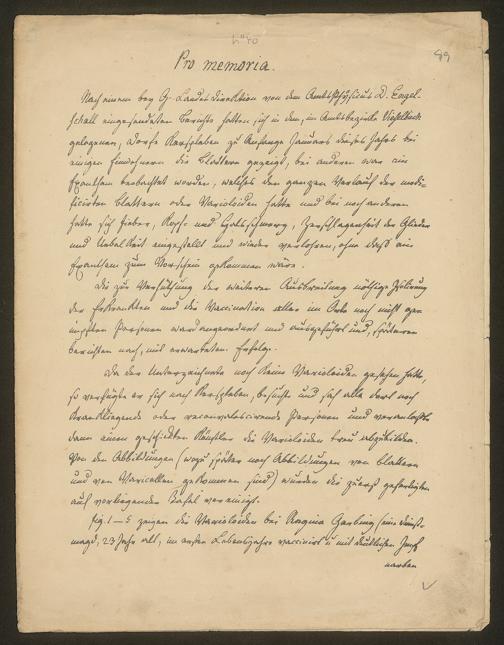 99
Pro memoria.
Nach einem bey G. Landes Direktion von dem Amtsphysicus D. Engel-
schall eingesendeten Berichte hatten sich in dem, im Amtsbezirke Vieselbach
gelegenen, Dorfe Kerspleben zu Anfange Januars dieses Jahrs bei
einigen Einwohnern die Blattern gezeigt, bei anderen war ein
Exanthem beobachtet worden, welches den ganzen Verlauf der modi-
ficirten Blattern oder Varioloiden hatte und bei noch anderen
hatte sich Fieber, Kopf- und Halsschmerz, Zerschlagenheit der Glieder
und Uebelkeit eingestellt und wieder verlohren, ohne daß ein
Exanthem zum Vorschein gekommen wäre.
Die zur Verhütung der weiteren Ausbreitung nöthige Isolirung
der Erkrankten und die Vaccination aller im Orte noch nicht ge-
impften Personen ward angeordnet und ausgeführt und, späteren
Berichten nach, mit erwartetem Erfolge.
Da der Unterzeichnete noch keine Varioloiden gesehen hatte,
so verfügte er sich nach Kerspleben, besuchte und sah alle dort noch
krankliegende oder reconvalescirende Personen und veranlaßte
dann einen geschickten Künstler die Varioloiden treu abzubilden.
Von den Abbildungen (wozu später noch Abbildungen von Blattern
und von Varicellen gekommen sind) wurden die zuerst gefertigten
auf vorliegender Tafel vereinigt.
Fig. 1–5 zeigen die Varioloiden bei Regina (eine Dienst-
magd, 23 Jahr alt, im ersten Lebensjahre vaccinirt u mit deutlichen Impf
narben